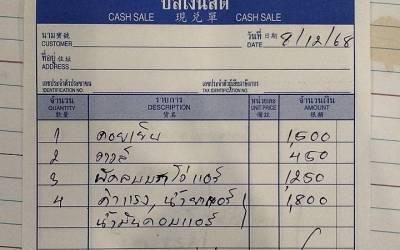 บิลเงินสด
CASH SALE 現兌單 CASH SALE
นาม寶號
CUSTOMER
วันที่日期 8/12/68
DATE
ที่อยู่住址
ADDRESS
เลขประจำตัวประชาชน
IDENTIFICATION NO.
เลขประจำตัวผู้เสียภาษีอากร
TAX IDENTIFICATION NO.
จำนวน รายการ หน่วยละ จำนวนเงิน
QUANTITY DESCRIPTION UNIT PRICE AMOUNT
數量 貨名 備註 銀碼
1 คอยเย็น 1,500
2 วาวล์ 450
3 พัดลมมาโว่แอร์ 1,250
4 ค่าแรง, น้ำยาแอร์ 1,800
น้ำมันคอมแอร์